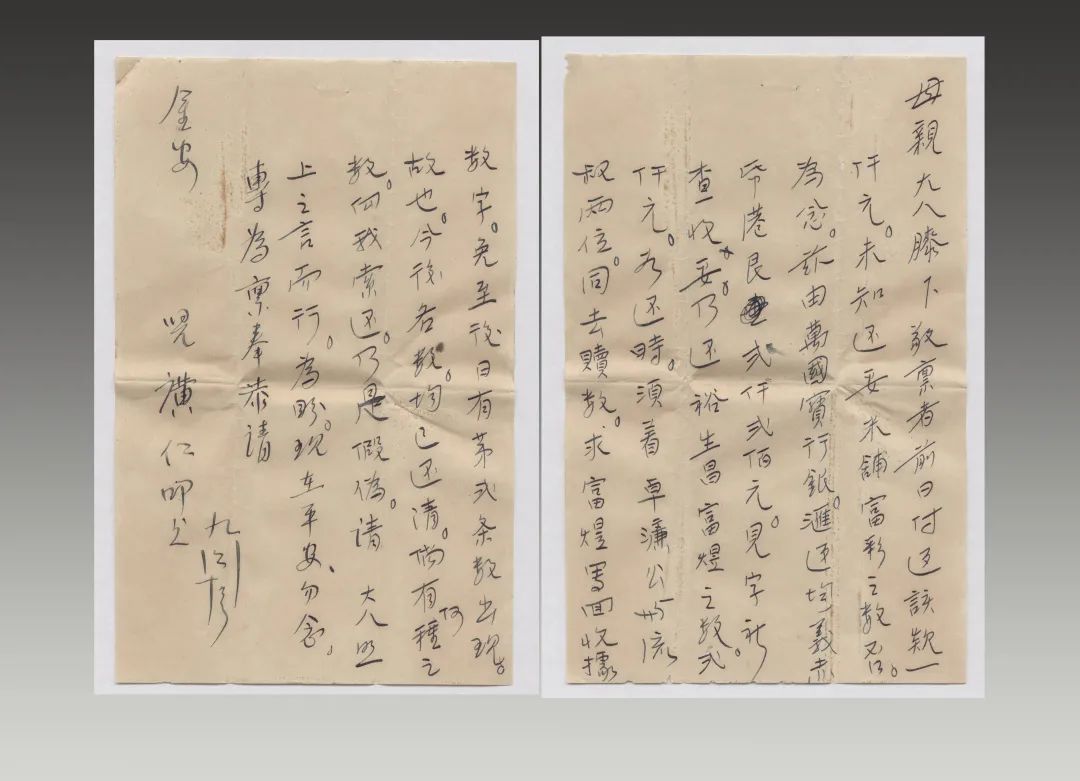 母親大人膝下敬禀者前日付返該款一
仟元。未知还妥米舖富彩之数否。
為念。兹由萬國寶行銀滙返均義赤
坎港艮弍仟弍佰元。見字祈
查收。妥仍还裕生昌富煌之数弍。
仟元。为还時。須着卓濂公
叔两位同去贖数。求富煌寫回收據
数字。免至後日有苐弍条数出現。
故也。今後各数。均已还清。倘有何種之
数。向我索还。乃是假偽。請 大人照
上之言而行。為盼。現在平安、勿念。
專為禀奉恭請
金安
児 仁叩上
九月